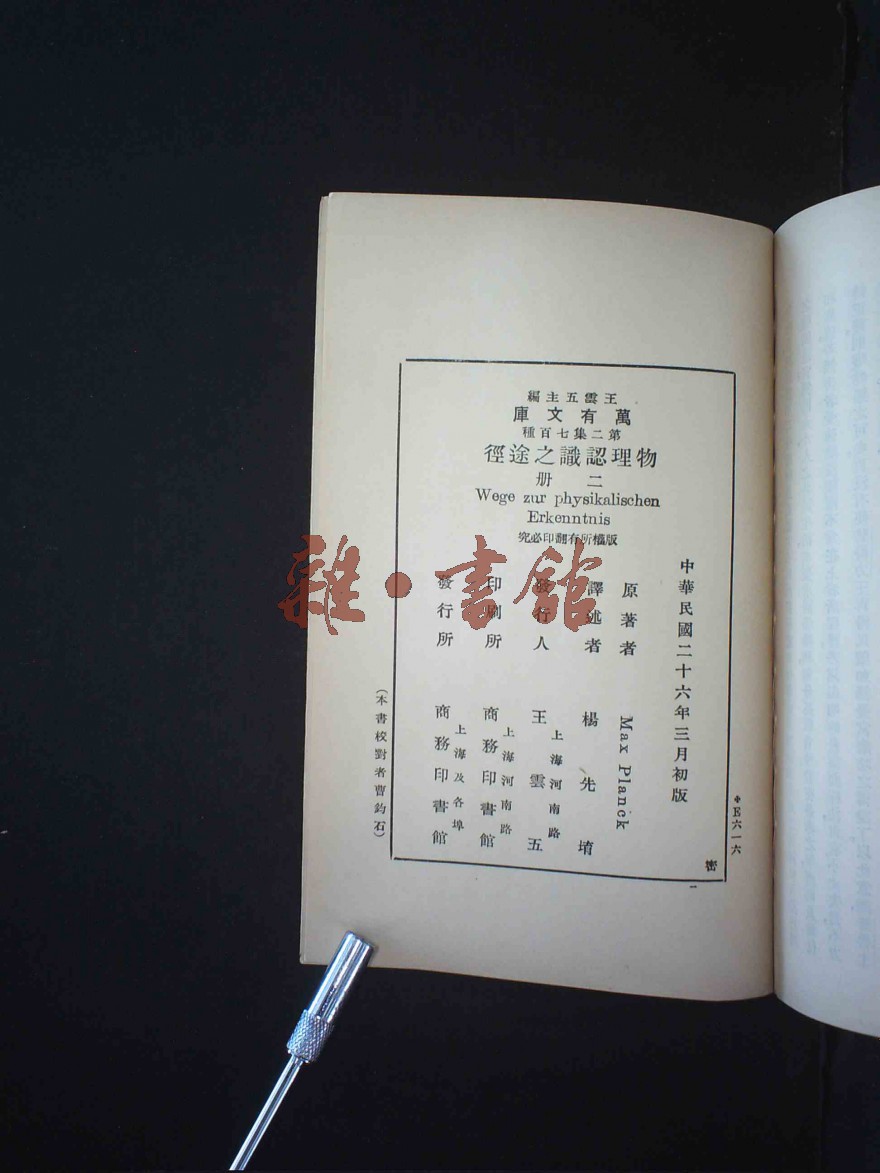 王雲五主編
萬有文庫
第二集七百種
物理認識之途徑
二册
Wege zur physikalischen
Erkenntnis
版權所有翻印必究
中華民國二十六年三月初版
原著者 Max Planck
譯述者 楊先堉
發行人 王雲五
上海河南路
印刷所 商務印書館
上海河南路
發行所 商務印書館
上海及各埠
(本書校對者曹鈞石)
E六一六
密
一
雜·書館